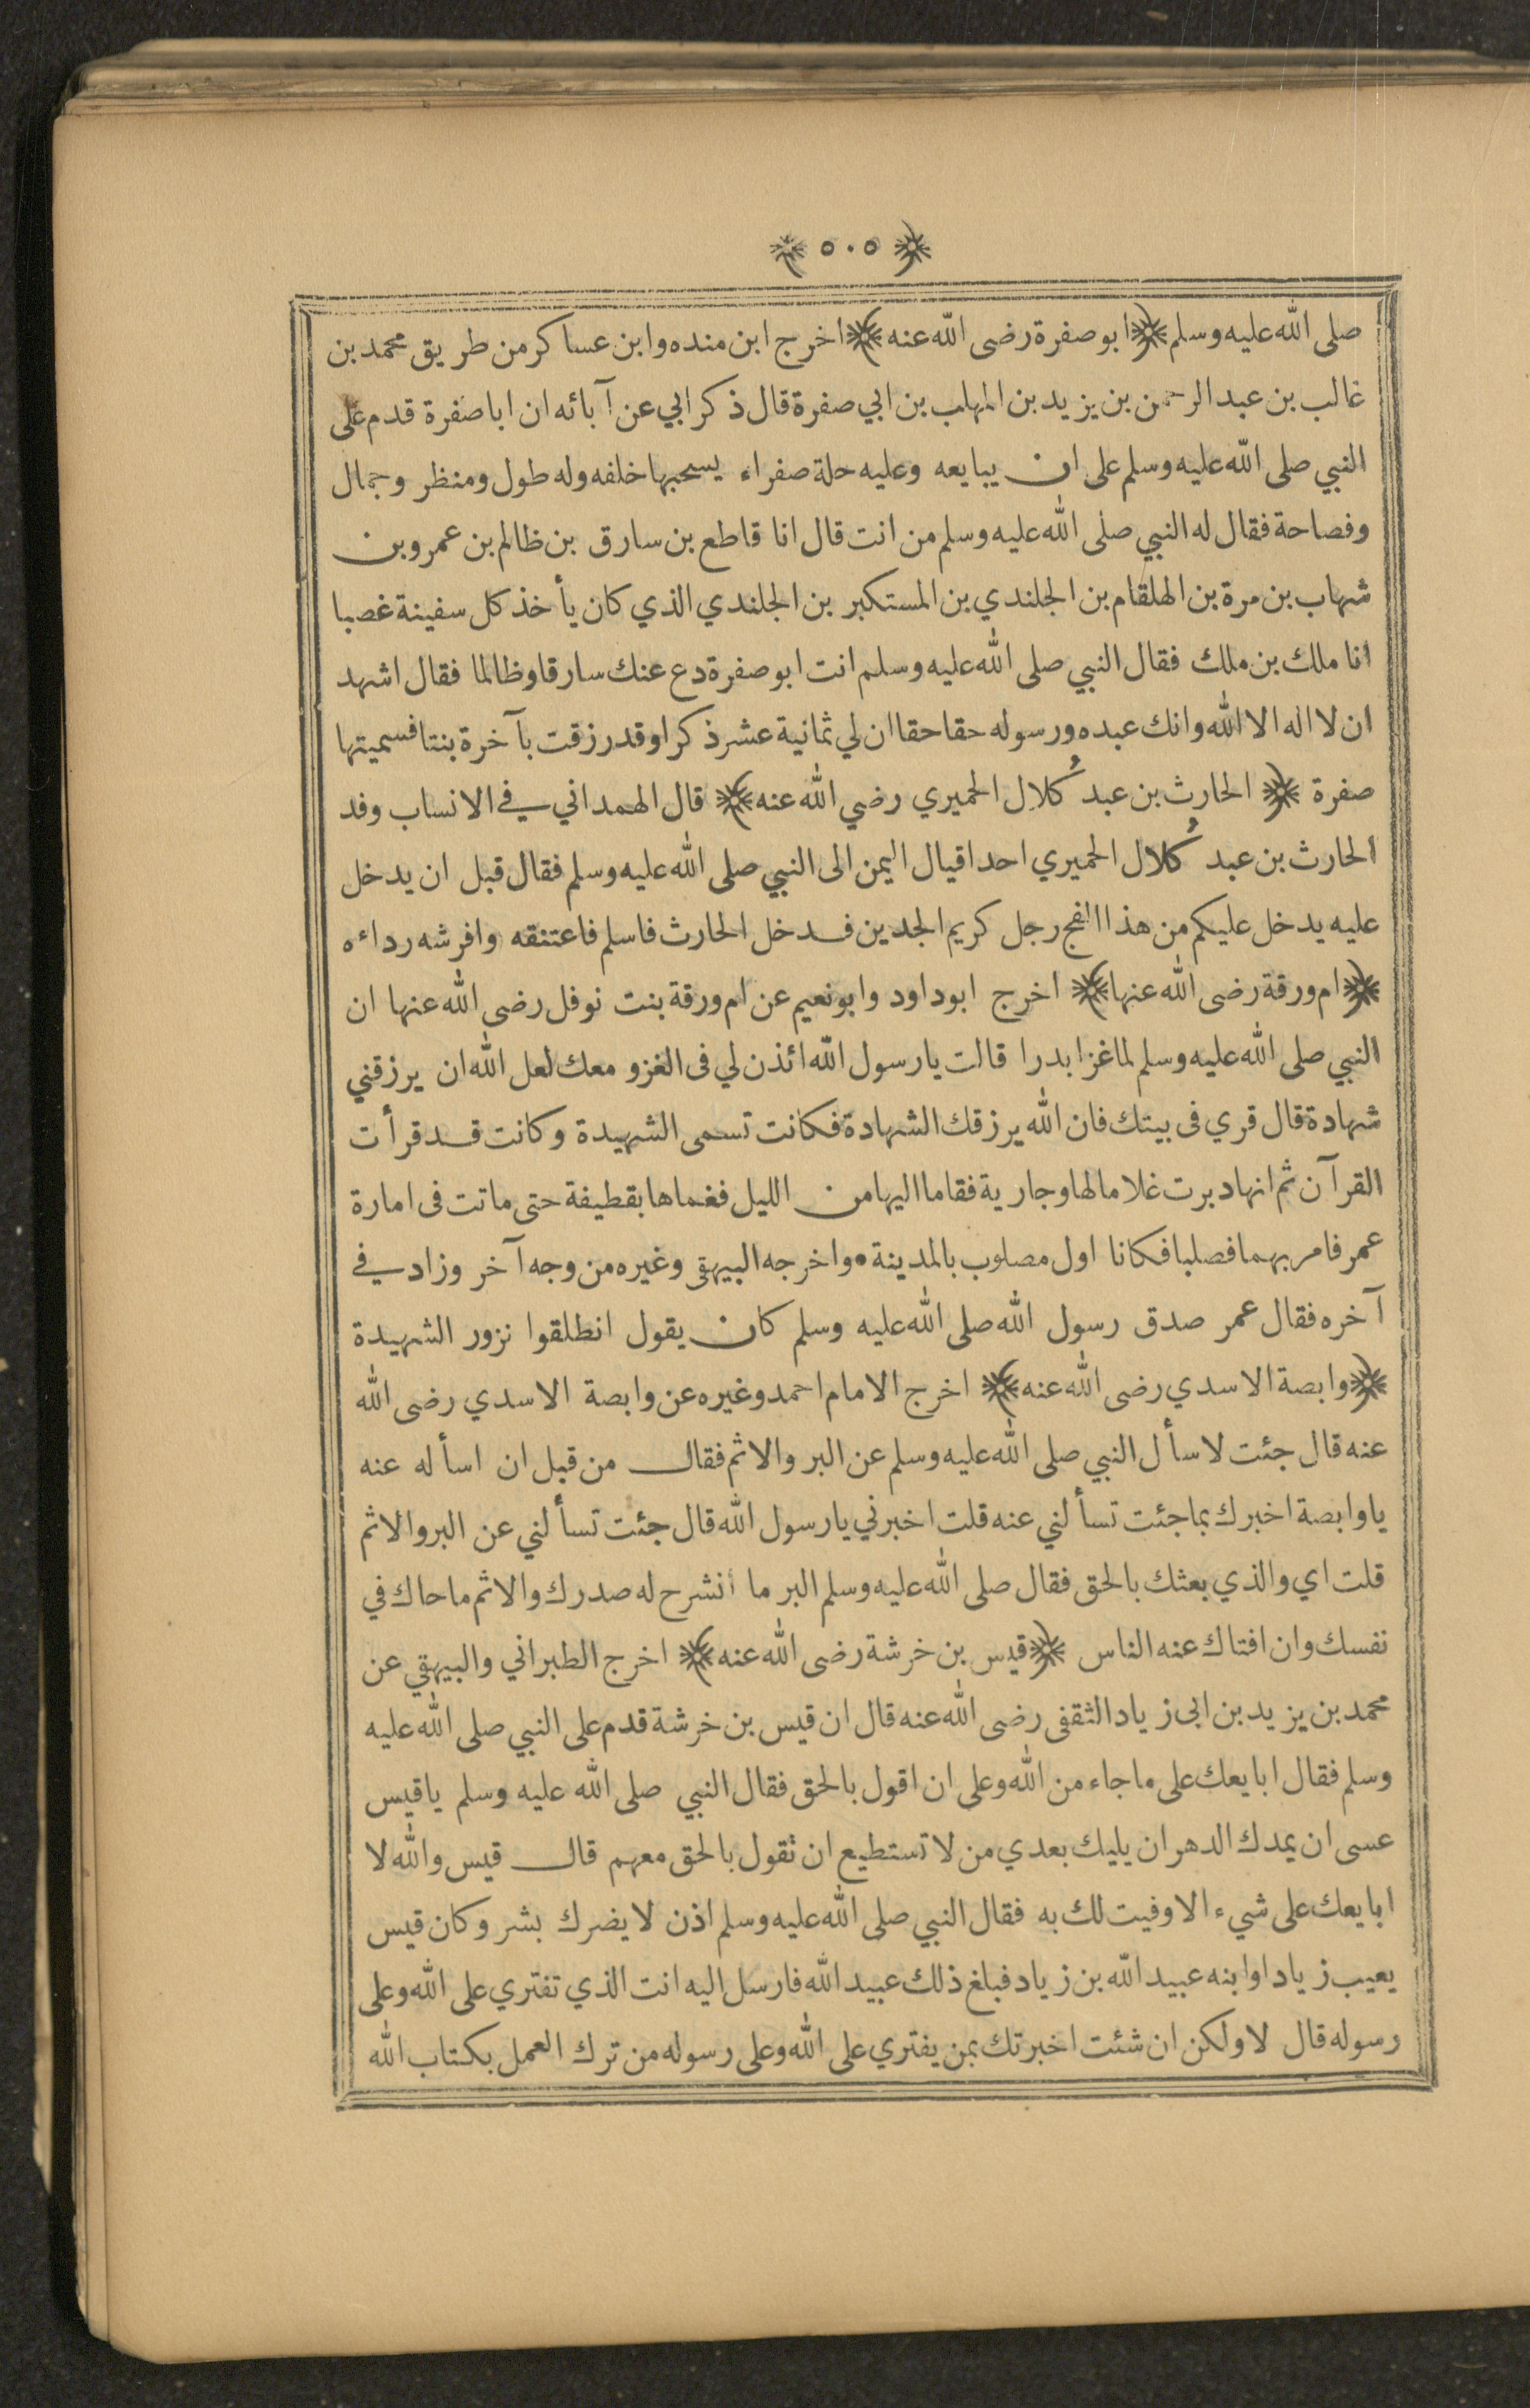 ﴿ ٥٠٥ ﴾
صلى الله عليه وسلم ﴿ ابو صفرة رضى الله عنه ﴾ اخرج ابن منده وابن عساكر من طريق محمد بن
غالب بن عبد الرحمن بن يزيد بن المهلب بن ابي صفرة قال ذكر ابي عن آبائه ان ابا صفرة قدم على
النبي صلى الله عليه وسلم على ان يبايعه وعليه حلة صفراء يسحبها خلفه وله طول ومنظر وجمال
وفصاحة فقال له النبي صلى الله عليه وسلم من انت قال انا قاطع بن سارق بن ظالم بن عمرو بن
شهاب بن مرة بن الهلقام بن الجلندي بن المستكبر بن الجلندي الذي كان يأخذ كل سفينة غصبا
انا ملك بن ملك فقال النبي صلى الله عليه وسلم انت ابو صفرة دع عنك سارقا وظالما فقال اشهد
ان لا اله الا الله وانك عبده ورسوله حقا حقا ان لي ثمانية عشر ذكرا وقد رزقت بآخرة بنتا فسميتها
صفرة ﴿ الحارث بن عبد كُلال الحميري رضي الله عنه ﴾ قال الهمداني في الانساب وفد
الحارث بن عبد كُلال الحميري احد اقيال اليمن الى النبي صلى الله عليه وسلم فقال قبل ان يدخل
عليه يدخل عليكم من هذا الفج رجل كريم الجدين فدخل الحارث فاسلم فاعتنقه وافرشه رداءه
﴿ ام ورقة رضى الله عنها ﴾ اخرج ابو داود وابو نعيم عن ام ورقة بنت نوفل رضى الله عنها ان
النبي صلى الله عليه وسلم لما غزا بدرا قالت يا رسول الله ائذن لي فى الغزو معك لعل الله ان يرزقني
شهادة قال قري فى بيتك فان الله يرزقك الشهادة فكانت تسمى الشهيدة وكانت قد قرأت
القرآن ثم انها دبرت غلاما لها وجارية فقاما اليها من الليل فغماها بقطيفة حتى ماتت فى امارة
عمر فامر بهما فصلبا فكانا اول مصلوب بالمدينة • واخرجه البيهقى وغيره من وجه آخر وزاد في
آخره فقال عمر صدق رسول الله صلى الله عليه وسلم كان يقول انطلقوا نزور الشهيدة
﴿ وابصة الاسدي رضى الله عنه ﴾ اخرج الامام احمد وغيره عن وابصة الاسدي رضى الله
عنه قال جئت لاسأل النبي صلى الله عليه وسلم عن البر والاثم فقال من قبل ان اسأله عنه
يا وابصة اخبرك بما جئت تسألني عنه قلت اخبرني يا رسول الله قال جئت تسألني عن البر والاثم
قلت اي والذي بعثك بالحق فقال صلى الله عليه وسلم البر ما انشرح له صدرك والاثم ما حاك في
نفسك وان افتاك عنه الناس ﴿ قيس بن خرشة رضى الله عنه ﴾ اخرج الطبراني والبيهقي عن
محمد بن يزيد بن ابى زياد الثقفى رضى الله عنه قال ان قيس بن خرشة قدم على النبي صلى الله عليه
وسلم فقال ابايعك على ما جاء من الله وعلى ان اقول بالحق فقال النبي صلى الله عليه وسلم يا قيس
عسى ان يمدك الدهر ان يليك بعدي من لا تستطيع ان تقول بالحق معهم قال قيس والله لا
ابايعك على شيء الا وفيت لك به فقال النبي صلى الله عليه وسلم اذن لا يضرك بشر وكان قيس
يعيب زيادا وابنه عبيد الله بن زياد فبلغ ذلك عبيد الله فارسل اليه انت الذي تفتري على الله وعلى
رسوله قال لا ولكن ان شئت اخبرتك بمن يفتري على الله وعلى رسوله من ترك العمل بكتاب الله